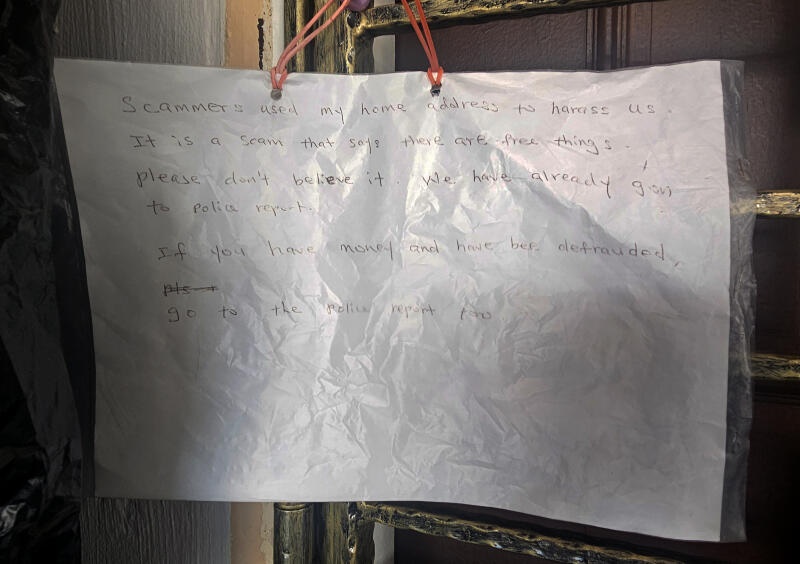 Scammers used my home address to harass us.
It is a scam that says there are free things.
please don't believe it. We have already gon
to police report.
If you have money and have bee defrauded,
pls
go to the police report too